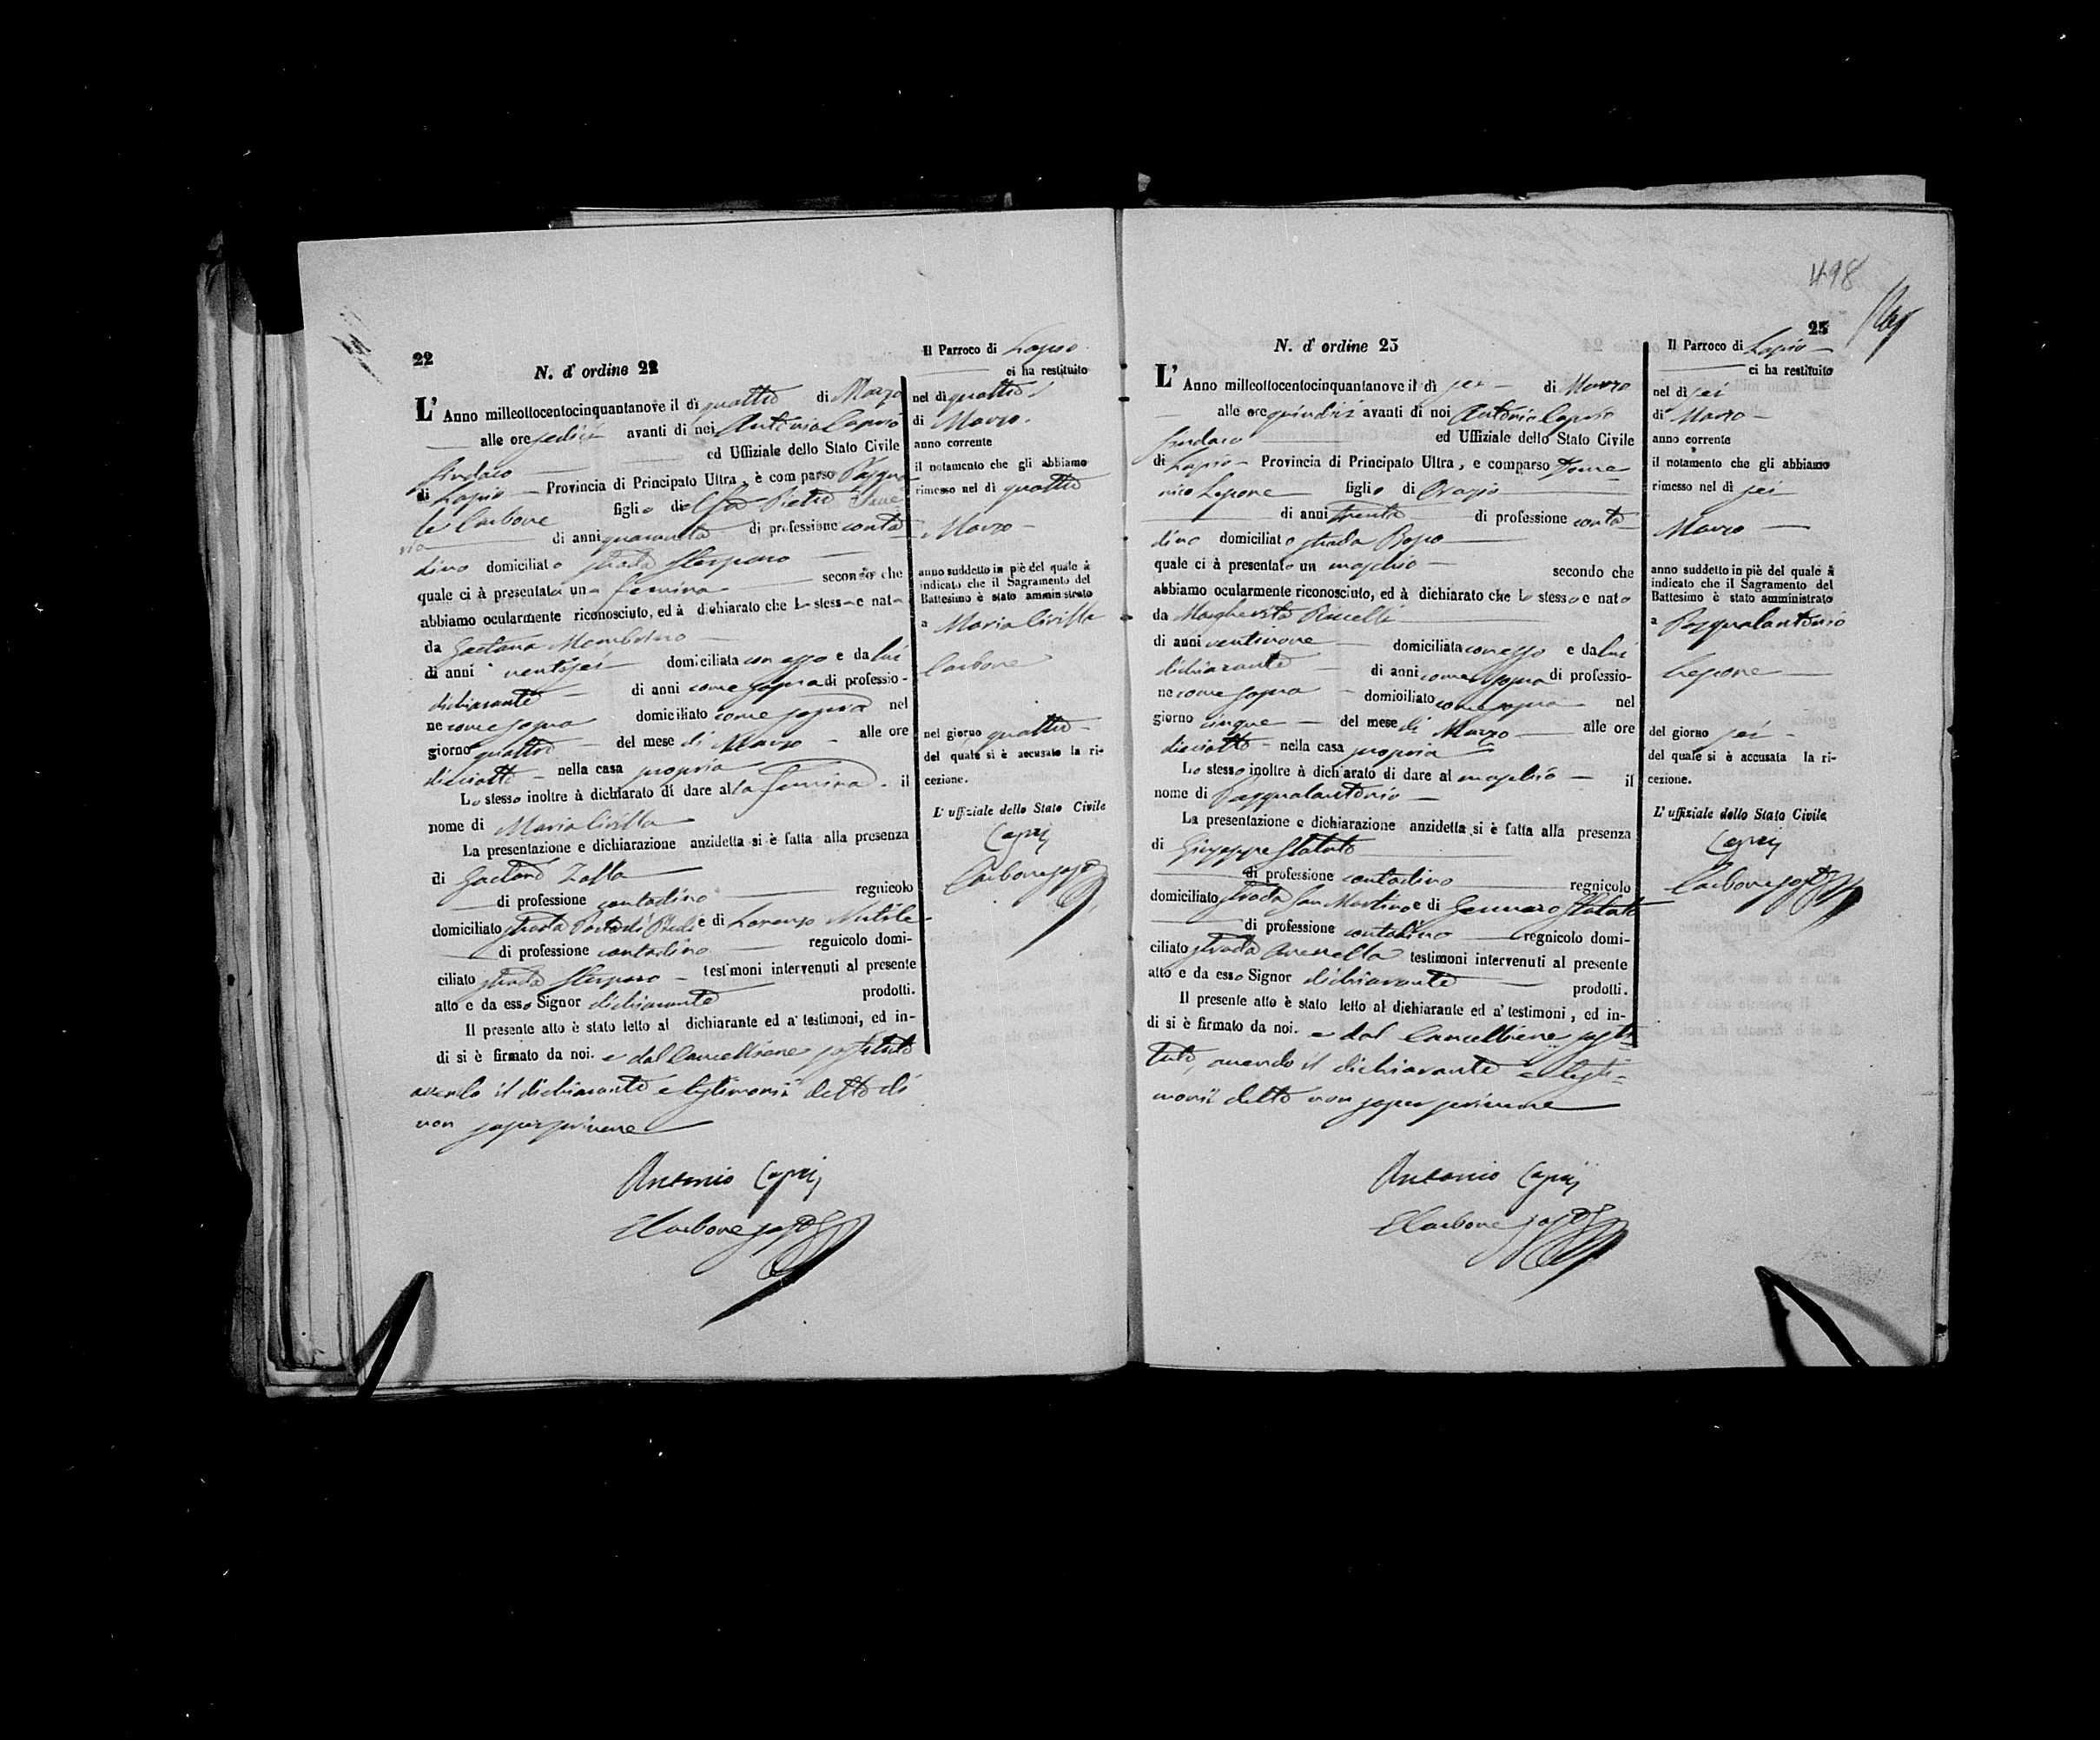 22
N. d' ordine 22
L' Anno milleottocentocinquantanove il dì quattro di Marzo
alle ore sedici avanti di noi Antonio Caprio
Sindaco ed Uffiziale dello Stato Civile
di Lapio Provincia di Principato Ultra, è comparso Pasqua
le Carbone figlio di Pietro
di anni quaranta di professione conta
dino domiciliato strada
quale ci à presentata una femina secondo che
abbiamo ocularmente riconosciuto, ed à dichiarato che la stessa e nata
da Gaetana
di anni ventisei domiciliata con esso e da lui
dichiarante di anni come sopra di professio-
ne come sopra domiciliato come sopra nel
giorno quattro del mese di Marzo alle ore
diciotto nella casa propria
Lo stesso inoltre à dichiarato di dare alla femina il
nome di Maria Civilla
La presentazione e dichiarazione anzidetta si è fatta alla presenza
di Gaetano Zalla
di professione contadino regnicolo
domiciliato strada e di Lorenzo
di professione contadino regnicolo domi-
ciliato strada testimoni intervenuti al presente
atto e da esso Signor dichiarante prodotti.
Il presente atto è stato letto al dichiarante ed a' testimoni, ed in-
di si è firmato da noi. e dal Cancelliere sostituto
avendo il dichiarante e testimonii detto di
non saper scrivere
Antonio Caprij
Carbone sost
Il Parroco di Lapio
ci ha restituito
nel dì quattro
di Marzo.
anno corrente
il notamento che gli abbiamo
rimesso nel dì quattro
Marzo
anno suddetto in piè del quale à
indicato che il Sagramento del
Battesimo è stato amministrato
a Maria Civilla
Carbone
nel giorno quattro
del quale si è accusato la ri-
cezione.
L' uffiziale dello Stato Civile
Caprij
Carbone sost
498
23
N. d' ordine 23
L' Anno milleottocentocinquantanove il dì sei di Marzo
alle ore quindici avanti di noi Antonio Caprio
Sindaco ed Uffiziale dello Stato Civile
di Lapio Provincia di Principato Ultra, e comparso Dome
nico Lepone figlio di Orazio
di anni trenta di professione conta
dino domiciliato strada
quale ci à presentato un maschio secondo che
abbiamo ocularmente riconosciuto, ed à dichiarato che Lo stesso e nato
da Margherita
di anni ventinove domiciliata con esso e da lui
dichiarante di anni come sopra di professio-
ne come sopra domiciliato come sopra nel
giorno cinque del mese di Marzo alle ore
diciotto nella casa propria
Lo stesso inoltre à dichiarato di dare al maschio il
nome di Pasqualantonio
La presentazione e dichiarazione anzidetta si è fatta alla presenza
di Giuseppe Statuto
di professione contadino regnicolo
domiciliato strada San Martino e di Gennaro Statuto
di professione contadino regnicolo domi-
ciliato strada testimoni intervenuti al presente
atto e da esso Signor dichiarante prodotti.
Il presente atto è stato letto al dichiarante ed a' testimoni, ed in-
di si è firmato da noi. e dal Cancelliere sosti
tuto, avendo il dichiarante e testi=
monii detto non saper scrivere
Antonio Caprij
Carbone sost
Il Parroco di Lapio
ci ha restituito
nel dì sei
di Marzo
anno corrente
il notamento che gli abbiamo
rimesso nel dì sei
Marzo
anno suddetto in piè del quale à
indicato che il Sagramento del
Battesimo è stato amministrato
a Pasqualantonio
Lepone
del giorno sei
del quale si è accusata la ri-
cezione.
L' uffiziale dello Stato Civile
Caprij
Carbone sost